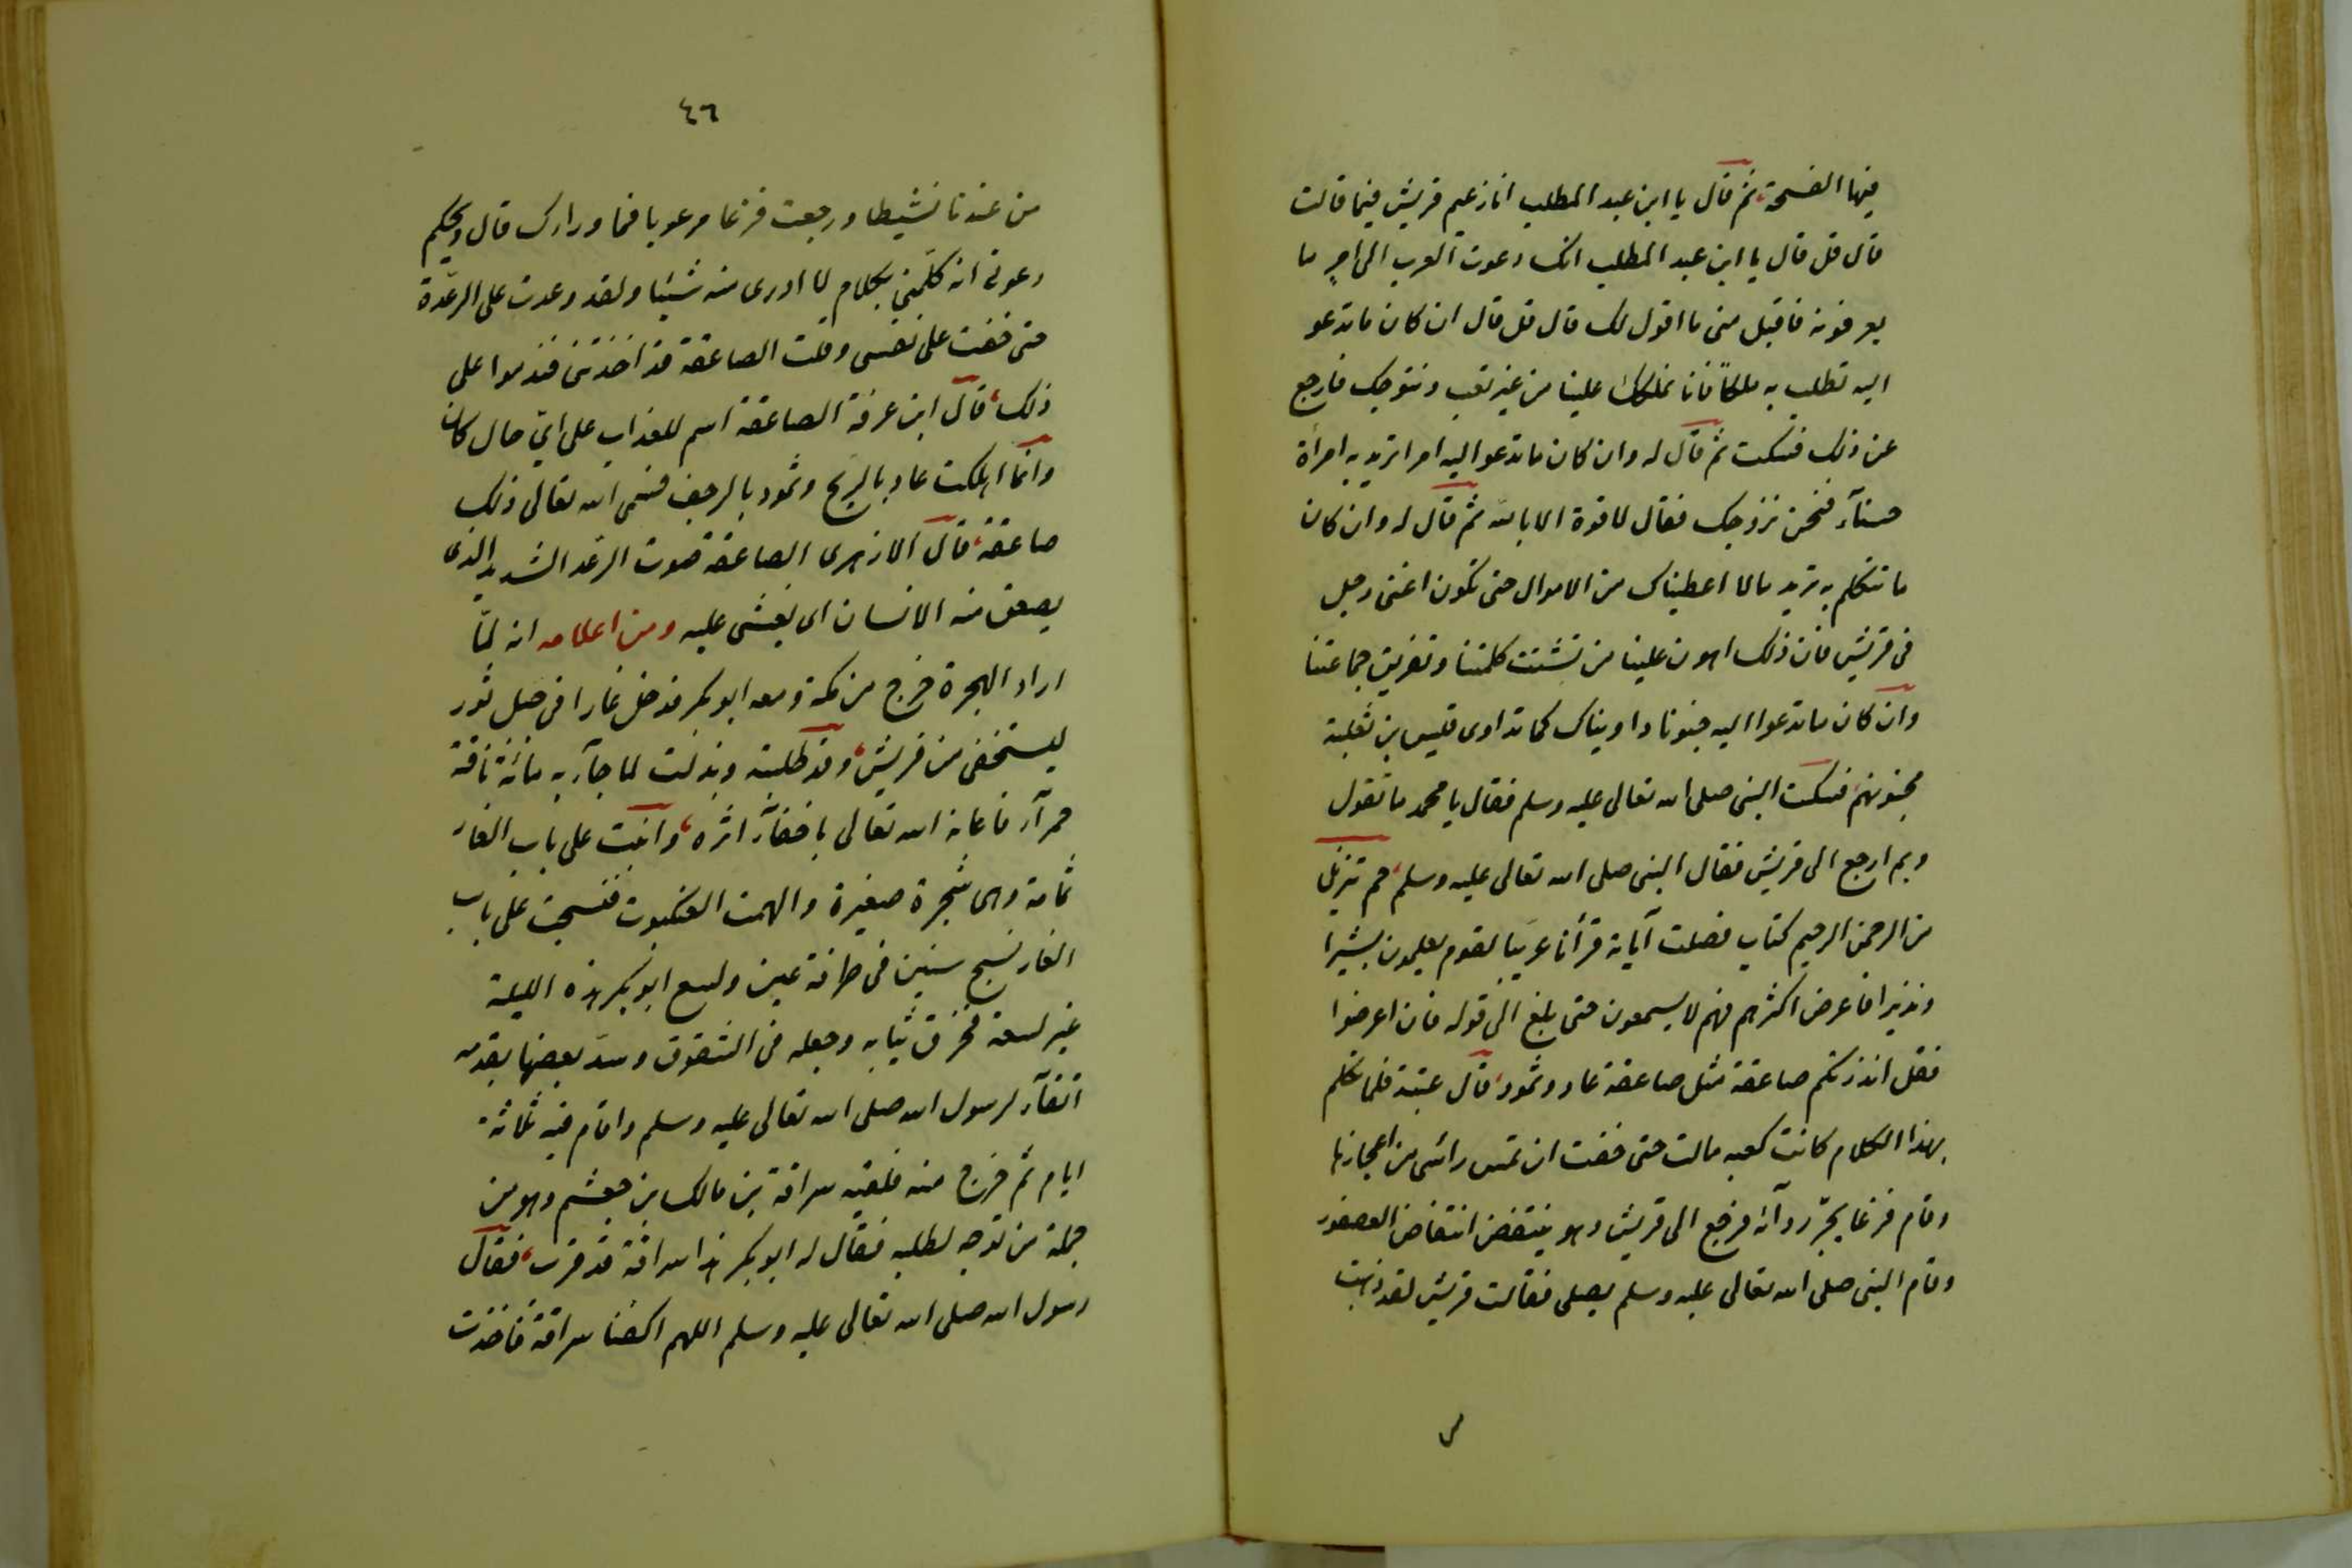 فيها الفسحة، ثم قال يا ابن عبد المطلب انا زعيم قريش فيما قالت
قال قل قال يا ابن عبد المطلب انك دعوت العرب الى امرٍ ما
يعرفونه فاقبل منى ما اقول لك قال قل قال ان كان ما تدعو
اليه تطلب به ملكاً فانا نملكك علينا من غير تعب ونتوجك فارجع
عن ذلك فسكت ثم قال له وان كان ما تدعو اليه امرا تريد به امرأة
حسنآء فنحن نزوجك فقال لا قوة الا بالله ثم قال له وان كان
ما تتكلم به تريد مالا اعطيناك من الاموال حتى تكون اغنى رجل
فى قريش فان ذلك اهون علينا من تشتت كلمتنا وتفريق جماعتنا
وان كان ما تدعوا اليه جنونا داويناك كما تداوى قيس بن ثعلبة
مجنونهم، فسكت النبى صلى الله تعالى عليه وسلم فقال يا محمد ما تقول
وبم ارجع الى قريش فقال النبى صلى الله تعالى عليه وسلم، حم تنزيل
من الرحمن الرحيم كتاب فصلت آياته قرأنا عربيا لقوم يعلمون بشيرا
ونذيرا فاعرض اكثرهم فهم لا يسمعون حتى بلغ الى قوله فان اعرضوا
فقل انذرتكم صاعقة مثل صاعقة عاد وثمود، قال عتبة فلما تكلم
بهذا الكلام كانت كعبه مالت حتى خفت ان تمس رائسى من اعجازها
وقام فزعا يجرّ ردآئه فرجع الى قريش وهو ينتفض انتفاض العصفور
وقام النبى صلى الله تعالى عليه وسلم يصلى فقالت قريش لقد ذهبت
٤٦
من عندنا نشيطا ورجعت فزعا مرعوبا فما وراءك قال ويحكم
دعونى انه كلّمنى بكلام لا ادرى منه شيئا ولقد وعدت على الرعدة
حتى خفت على نفسى وقلت الصاعقة قد اخذتنى فندموا على
ذلك، قال ابن عرفة الصاعقة اسم للعذاب على اىّ حال كان
وانما اهلكت عاد بالريح وثمود بالرجف فسمى الله تعالى ذلك
صاعقة، قال الازهرى الصاعقة صوت الرعد الشديد الذى
يصعق منه الانسان اى يغشى عليه ومن اعلامه انه لمّا
اراد الهجرة خرج من مكة ومعه ابو بكر فدخل غارا فى جبل ثور
ليستخفى من قريش، وقد طلبته وبذلت لما جآء به مائة ناقة
حمرآء فاعانه الله تعالى باخفآء اثره، وانبت على باب الغار
ثمامة وهى شجرة صغيرة والهمت العنكبوت فنسجت على باب
الغار نسج سنين فى طرفة عين ولسع ابو بكر هذه الليلة
غير لسعة فخرق ثيابه وجعله فى الشقوق وسدّ بعضها بقدمه
اتقآء لرسول الله صلى الله تعالى عليه وسلم واقام فيه ثلاثة
ايام ثم خرج منه فلقيه سراقة بن مالك بن جعشم وهو من
جملة من توجه لطلبه فقال له ابو بكر هذا سراقة قد قرب، فقال
رسول الله صلى الله تعالى عليه وسلم اللهم اكفنا سراقة فاخذت